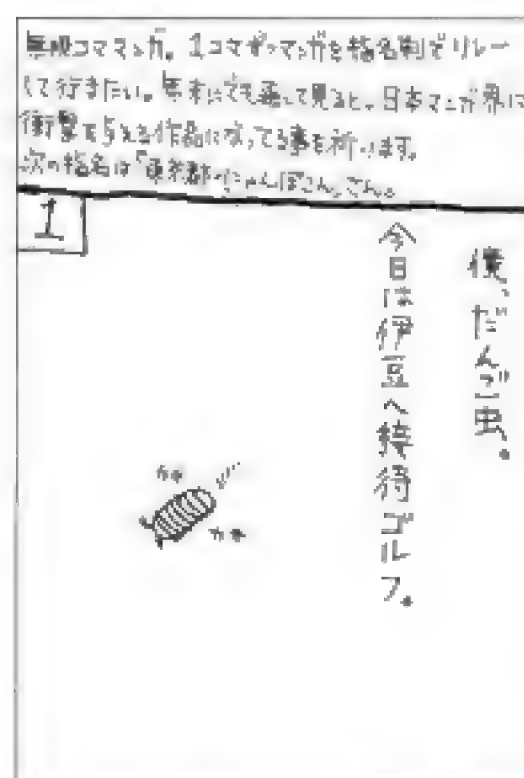 無限コママンガ。1コマずつマンガを指名制でリレー
して行きたい。年末に通して見ると、日本マンガ界に
衝撃を与える作品になってる事を祈ります。
次の指名は「東京都・にゃんぽこん」さん。
1
僕、だんご虫。
今日は伊豆へ接待ゴルフ。
カキ
カキ